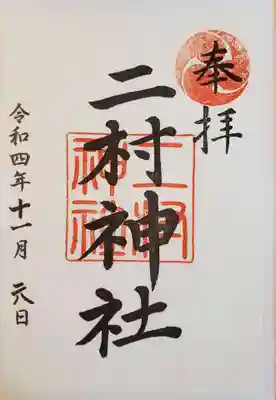 奉拝
二村神社
二村神社
令和四年十一月六日